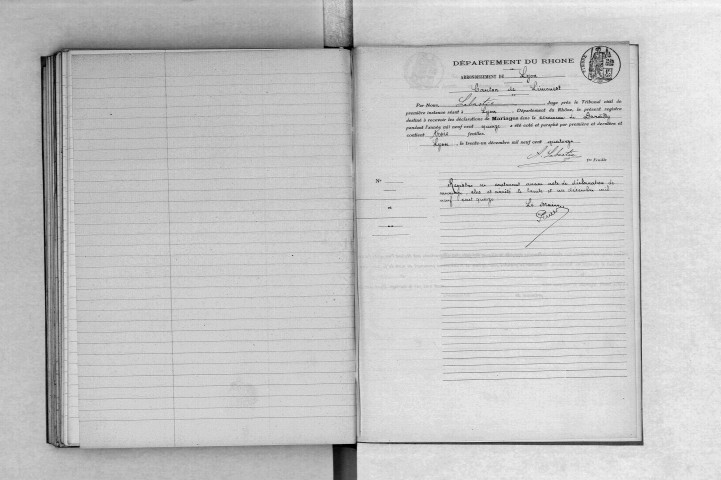 DÉPARTEMENT DU RHÔNE
ARRONDISSEMENT DE Lyon
Canton de Limonest
Par Nous, Juge près le Tribunal civil de
première instance séant à Lyon, Département du Rhône, le présent registre
destiné à recevoir les déclarations de Mariages dans la commune de Dardilly
pendant l'année mil neuf cent quinze a été coté et paraphé par première et dernière et
contient trois feuilles.
Lyon, le trente-un décembre mil neuf cent quatorze
1er Feuille
N°
Registre ne contenant aucun acte de déclaration de
mariage clos et arrêté le trente et un décembre mil
neuf cent quinze
Le Maire